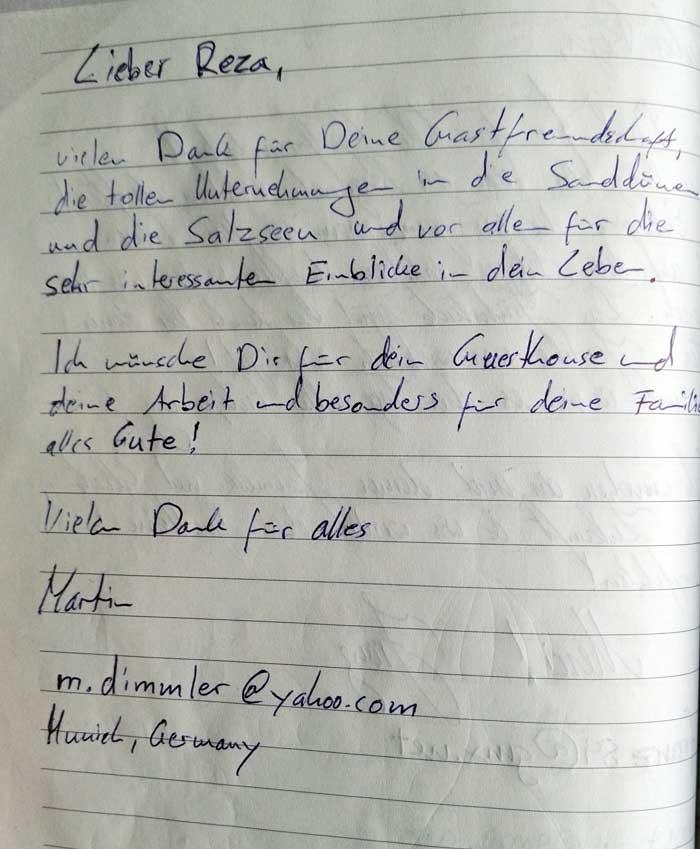 Lieber Reza,
vielen Dank für Deine Gastfreundschaft,
die tollen Unternehmungen in die Sanddünen
und die Salzseen und vor allem für die
sehr interessanten Einblicke in dein Leben.
Ich wünsche Dir für dein Guesthouse und
deine Arbeit und besonders für deine Familie
alles Gute!
Vielen Dank für alles
Martin
m.dimmler@yahoo.com
Munich, Germany